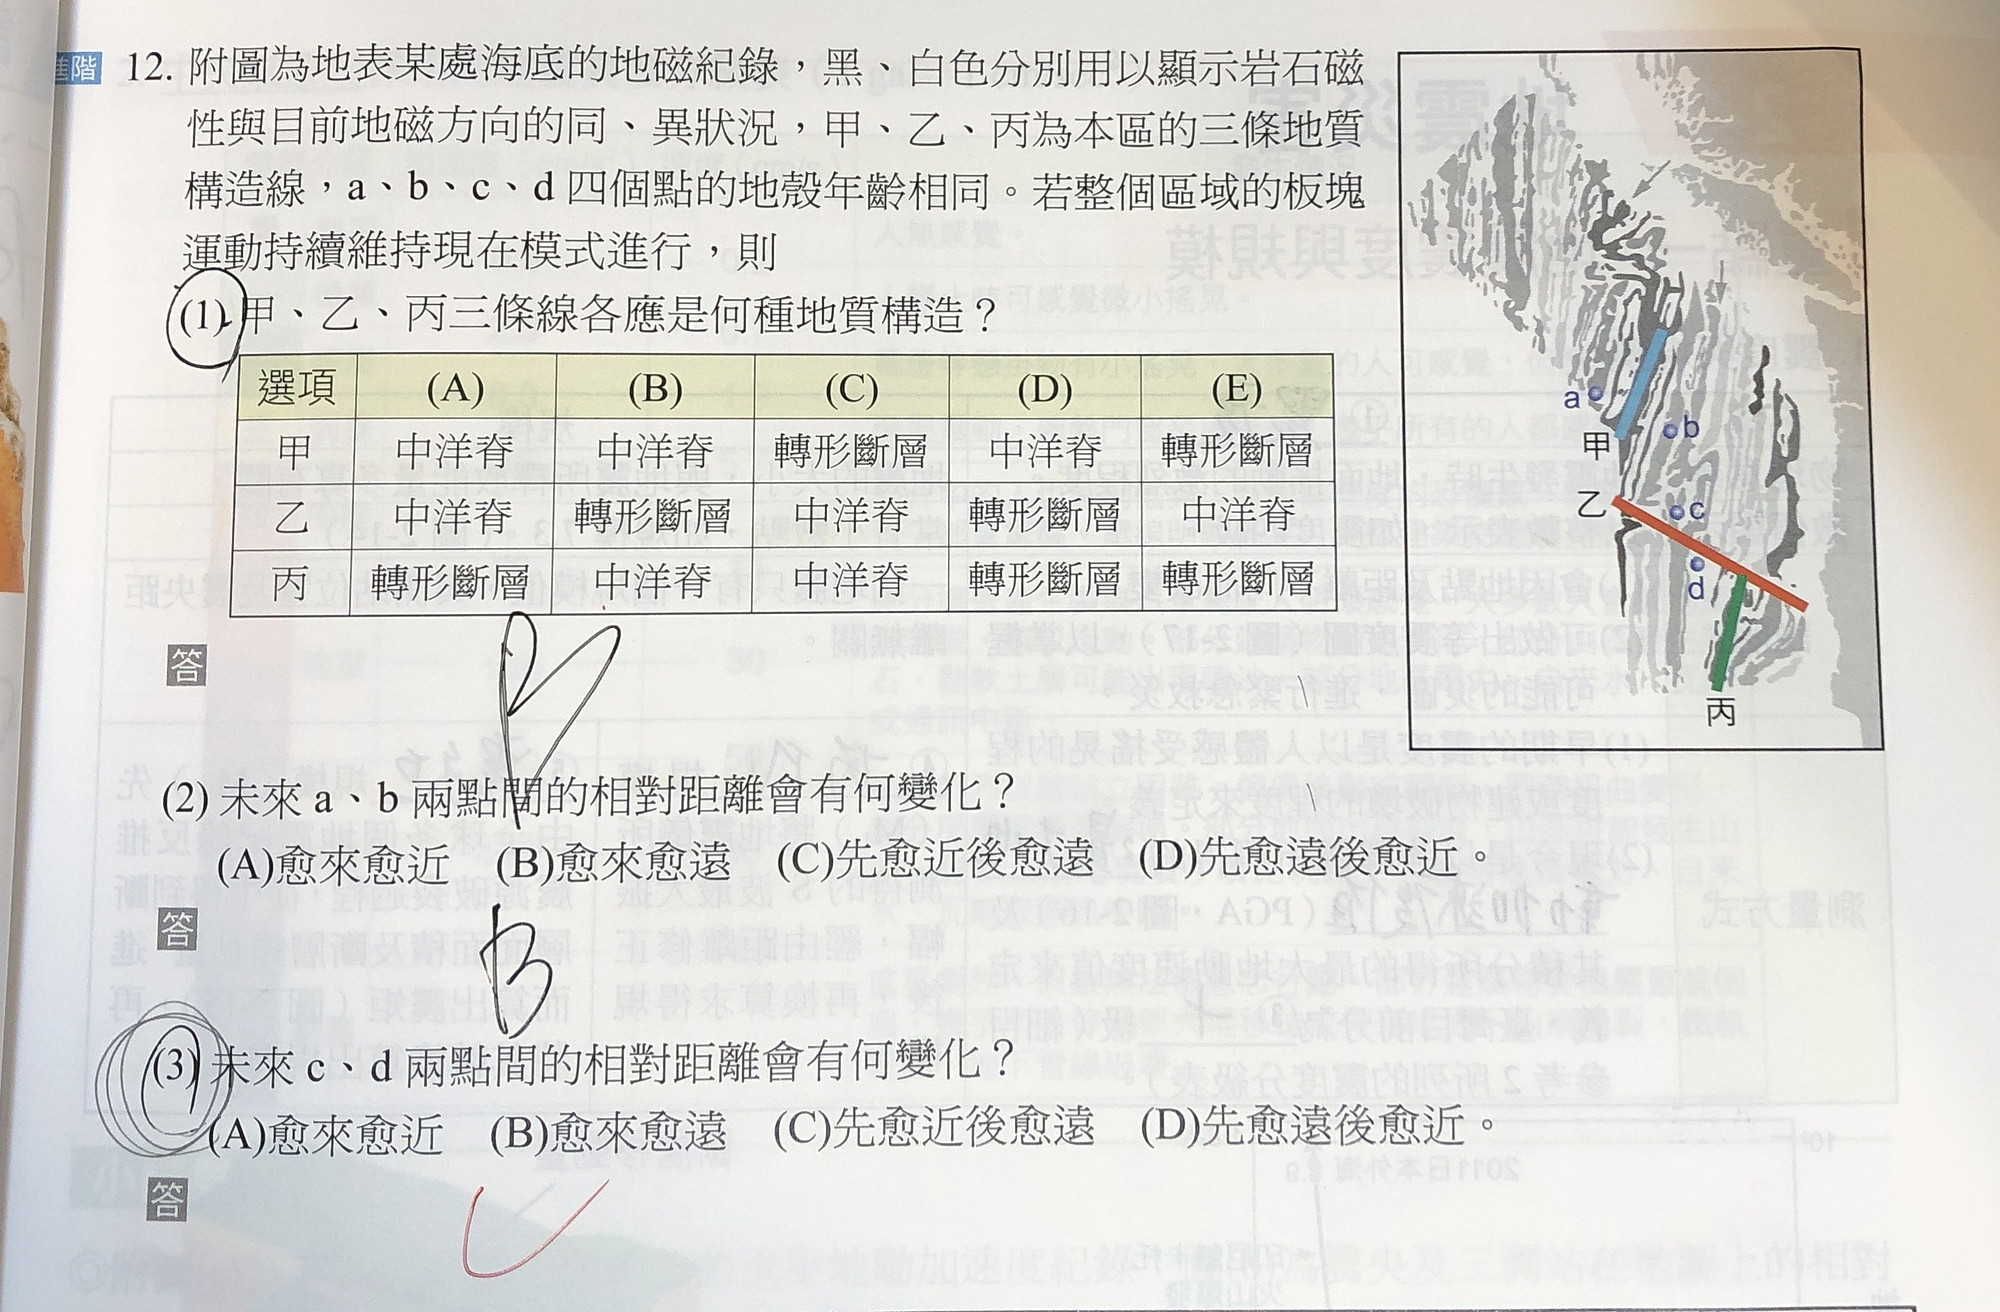 進階 12. 附圖為地表某處海底的地磁紀錄，黑、白色分別用以顯示岩石磁
性與目前地磁方向的同、異狀況，甲、乙、丙為本區的三條地質
構造線，a、b、c、d 四個點的地殼年齡相同。若整個區域的板塊
運動持續維持現在模式進行，則
(1) 甲、乙、丙三條線各應是何種地質構造？
選項 (A) (B) (C) (D) (E)
甲 中洋脊 中洋脊 轉形斷層 中洋脊 轉形斷層
乙 中洋脊 轉形斷層 中洋脊 轉形斷層 中洋脊
丙 轉形斷層 中洋脊 中洋脊 轉形斷層 轉形斷層
答 B
(2) 未來 a、b 兩點間的相對距離會有何變化？
(A)愈來愈近 (B)愈來愈遠 (C)先愈近後愈遠 (D)先愈遠後愈近。
答 B
(3) 未來 c、d 兩點間的相對距離會有何變化？
(A)愈來愈近 (B)愈來愈遠 (C)先愈近後愈遠 (D)先愈遠後愈近。
答
a
b
甲
乙
c
d
丙